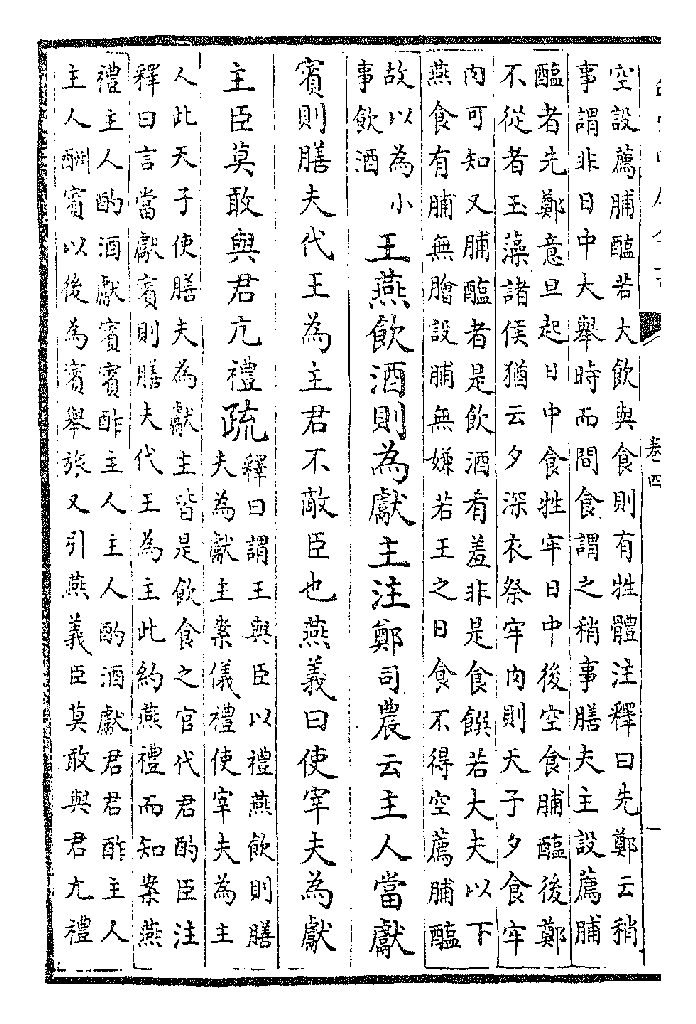 卷四
空設薦脯醢若大飲與食則有牲體注釋曰先鄭云稍
事謂非日中大舉時而間食謂之稍事膳夫主設薦脯
醢者先鄭意旦起日中食牲牢日中後空食脯醢後鄭
不從者玉藻諸侯猶云夕深衣祭牢肉則天子夕食牢
肉可知又脯醢者是飲酒肴羞非是食饌若大夫以下
燕食有脯無膾設脯無嫌若王之日食不得空薦脯醢
故以為小
事飲酒
王燕飲酒則為獻主注鄭司農云主人當獻
賓則膳夫代王為主君不敵臣也燕義曰使宰夫為獻
主臣莫敢與君亢禮疏
釋曰謂王與臣以禮燕飲則膳
夫為獻主案儀禮使宰夫為主
人此天子使膳夫為獻主皆是飲食之官代君酌臣注
釋曰言當獻賓則膳夫代王為主此約燕禮而知案燕
禮主人酌酒獻賓賓酢主人主人酌酒獻君君酢主人
主人酬賓以後為賓舉旅又引燕義臣莫敢與君亢禮